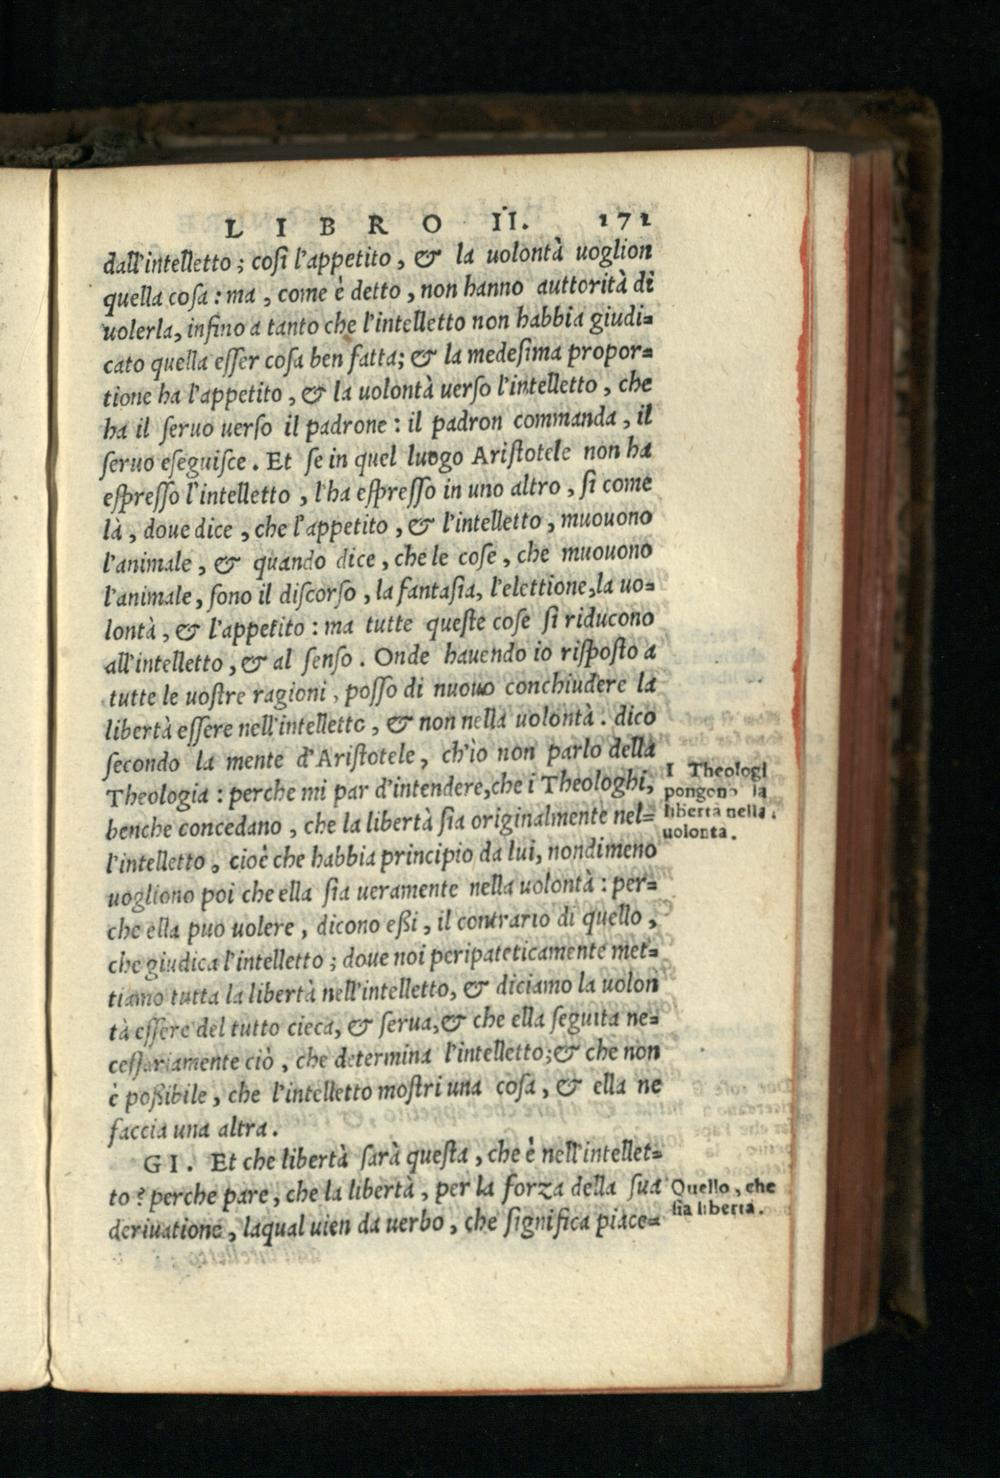 LIBRO II. 171
dall'intelletto; cosi l'appetito, & la uolontà uoglion
quella cosa: ma, come è detto, non hanno auttorità di
uolerla, infino a tanto che l'intelletto non habbia giudi=
cato quella esser cosa ben fatta; & la medesima propor=
tione ha l'appetito, & la uolontà uerso l'intelletto, che
ha il seruo uerso il padrone: il padron commanda, il
seruo eseguisce. Et se in quel luogo Aristotele non ha
espresso l'intelletto, l'ha espresso in uno altro, si come
là, doue dice, che l'appetito, & l'intelletto, muouono
l'animale, & quando dice, che le cose, che muouono
l'animale, sono il discorso, la fantasia, l'elettione, la uo=
lontà, & l'appetito: ma tutte queste cose si riducono
all'intelletto, & al senso. Onde hauendo io risposto a
tutte le uostre ragioni, posso di nuouo conchiudere la
libertà essere nell'intelletto, & non nella uolontà. dico
secondo la mente d'Aristotele, ch'io non parlo della
Theologia: perche mi par d'intendere, che i Theologhi,
benche concedano, che la libertà sia originalmente nel=
l'intelletto, cioè che habbia principio da lui, nondimeno
uogliono poi che ella sia ueramente nella uolontà: per=
che ella puo uolere, dicono eßi, il contrario di quello,
che giudica l'intelletto; doue noi peripateticamente met=
tiamo tutta la libertà nell'intelletto, & diciamo la uolon
tà essere del tutto cieca, & serua, & che ella seguita ne=
cessariamente ciò, che determina l'intelletto; & che non
è poßibile, che l'intelletto mostri una cosa, & ella ne
faccia una altra.
GI. Et che libertà sarà questa, che è nell'intellet=
to? perche pare, che la libertà, per la forza della sua
deriuatione, laqual uien da uerbo, che significa piace=
I Theologi
pongono la
libertà nella
uolonta.
Quello, che
sia libertà.